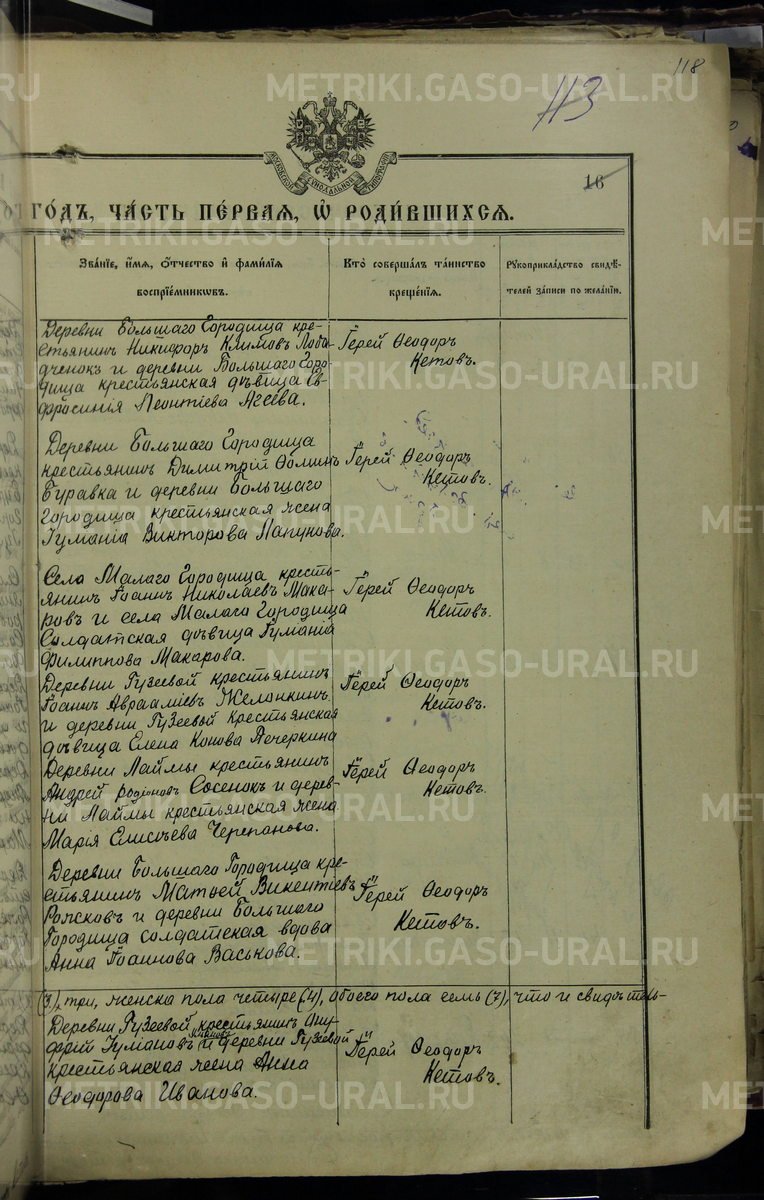 118
113
МОСКОВСКОЙ СѴНОДАЛЬНОЙ ТИПОГРАФІИ
16
ГО́ДЪ, ЧА́СТЬ ПЕ́РВАЯ, Ѡ҆ РОДИ́ВШИХСѦ.
ЗВА́НІЕ, И҆́МѦ, Ѻ҆́ТЧЕСТВО И҆ ФАМИ́ЛІѦ ВОСПРІЕ́МНИКѠВЪ.
КТО̀ СОВЕРША́ЛЪ ТА́ИНСТВО КРЕЩЕ́НІѦ.
РꙊКОПРИКЛА́ДСТВО СВИДѢ́ТЕЛЕЙ ЗА́ПИСИ ПО ЖЕЛА́НІЮ.
Деревни Большаго Городища кре-
стьянинъ Никифоръ Климовъ Лоба-
ченокъ и деревни Большаго Горо-
дища крестьянская дѣвица Ев-
фросинія Леонтіева Агѣева.
Іерей Ѳеодоръ
Кетовъ.
Деревни Большаго Городища
крестьянинъ Димитрій Ѳоминъ
Буравка и деревни Большаго
Городища крестьянская жена
Іуманія Викторова Лапунова.
Іерей Ѳеодоръ
Кетовъ.
Село Малаго Городища кресть-
янинъ Іоаннъ Николаевъ Мака-
ровъ и села Малаго Городища
Солдатская дѣвица Іуманія
Филиппова Макарова.
Іерей Ѳеодоръ
Кетовъ.
Деревни Гузеевой крестьянинъ
Іоаннъ Авраамiевъ Желонкинъ
и деревни Гузеевой крестьянская
дѣвица Елена Конова Печеркина
Іерей Ѳеодоръ
Кетовъ.
Деревни Лаймы крестьянинъ
Андрей родіоновъ Сосенокъ и дерев-
ни Лаймы крестьянская жена
Марія Елисѣева Черепанова.
Іерей Ѳеодоръ
Кетовъ.
Деревни Большаго Городища кре-
стьянинъ Матвей Викентіевъ
Рожковъ и деревни Большаго
Городища солдатская вдова
Анна Іоаннова Васькова.
Іерей Ѳеодоръ
Кетовъ.
(3), три, женска пола четыре (4), обоего пола семь (7), что и свидѣтель-
Деревни Гузеевой крестьянинъ Ону-
фрій Іумановъ и деревни Гузеевой
крестьянская жена Анна
Ѳеодорова Иванова.
Іерей Ѳеодоръ
Кетовъ.
METRIKI.GASO-URAL.RU